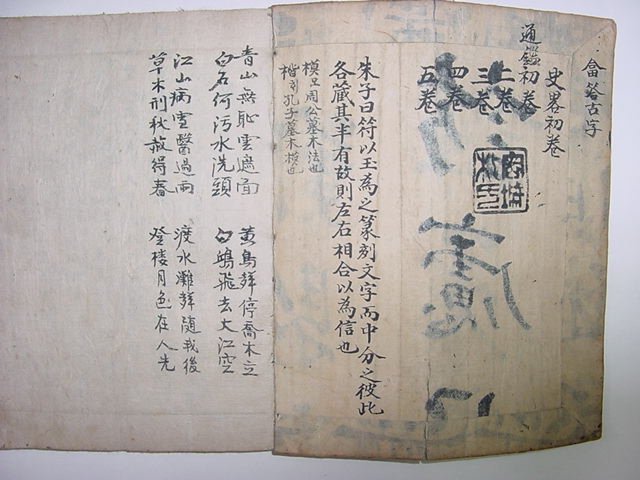 畣答古字
史畧初卷
通鑑初卷
二卷
三卷
四卷
五卷
朱子曰符以玉為之篆刻文字而中分之彼此
各藏其半有故則左右相合以為信也
周公墓木法也
孔子墓木模也
青山無恥雲遮面 黃鳥聲停喬木立
白石何污水洗頭 白鷗飛去大江空
江山病雪醫過雨 渡水灘聲隨我後
草木刑秋赦得春 登楼月色在人先